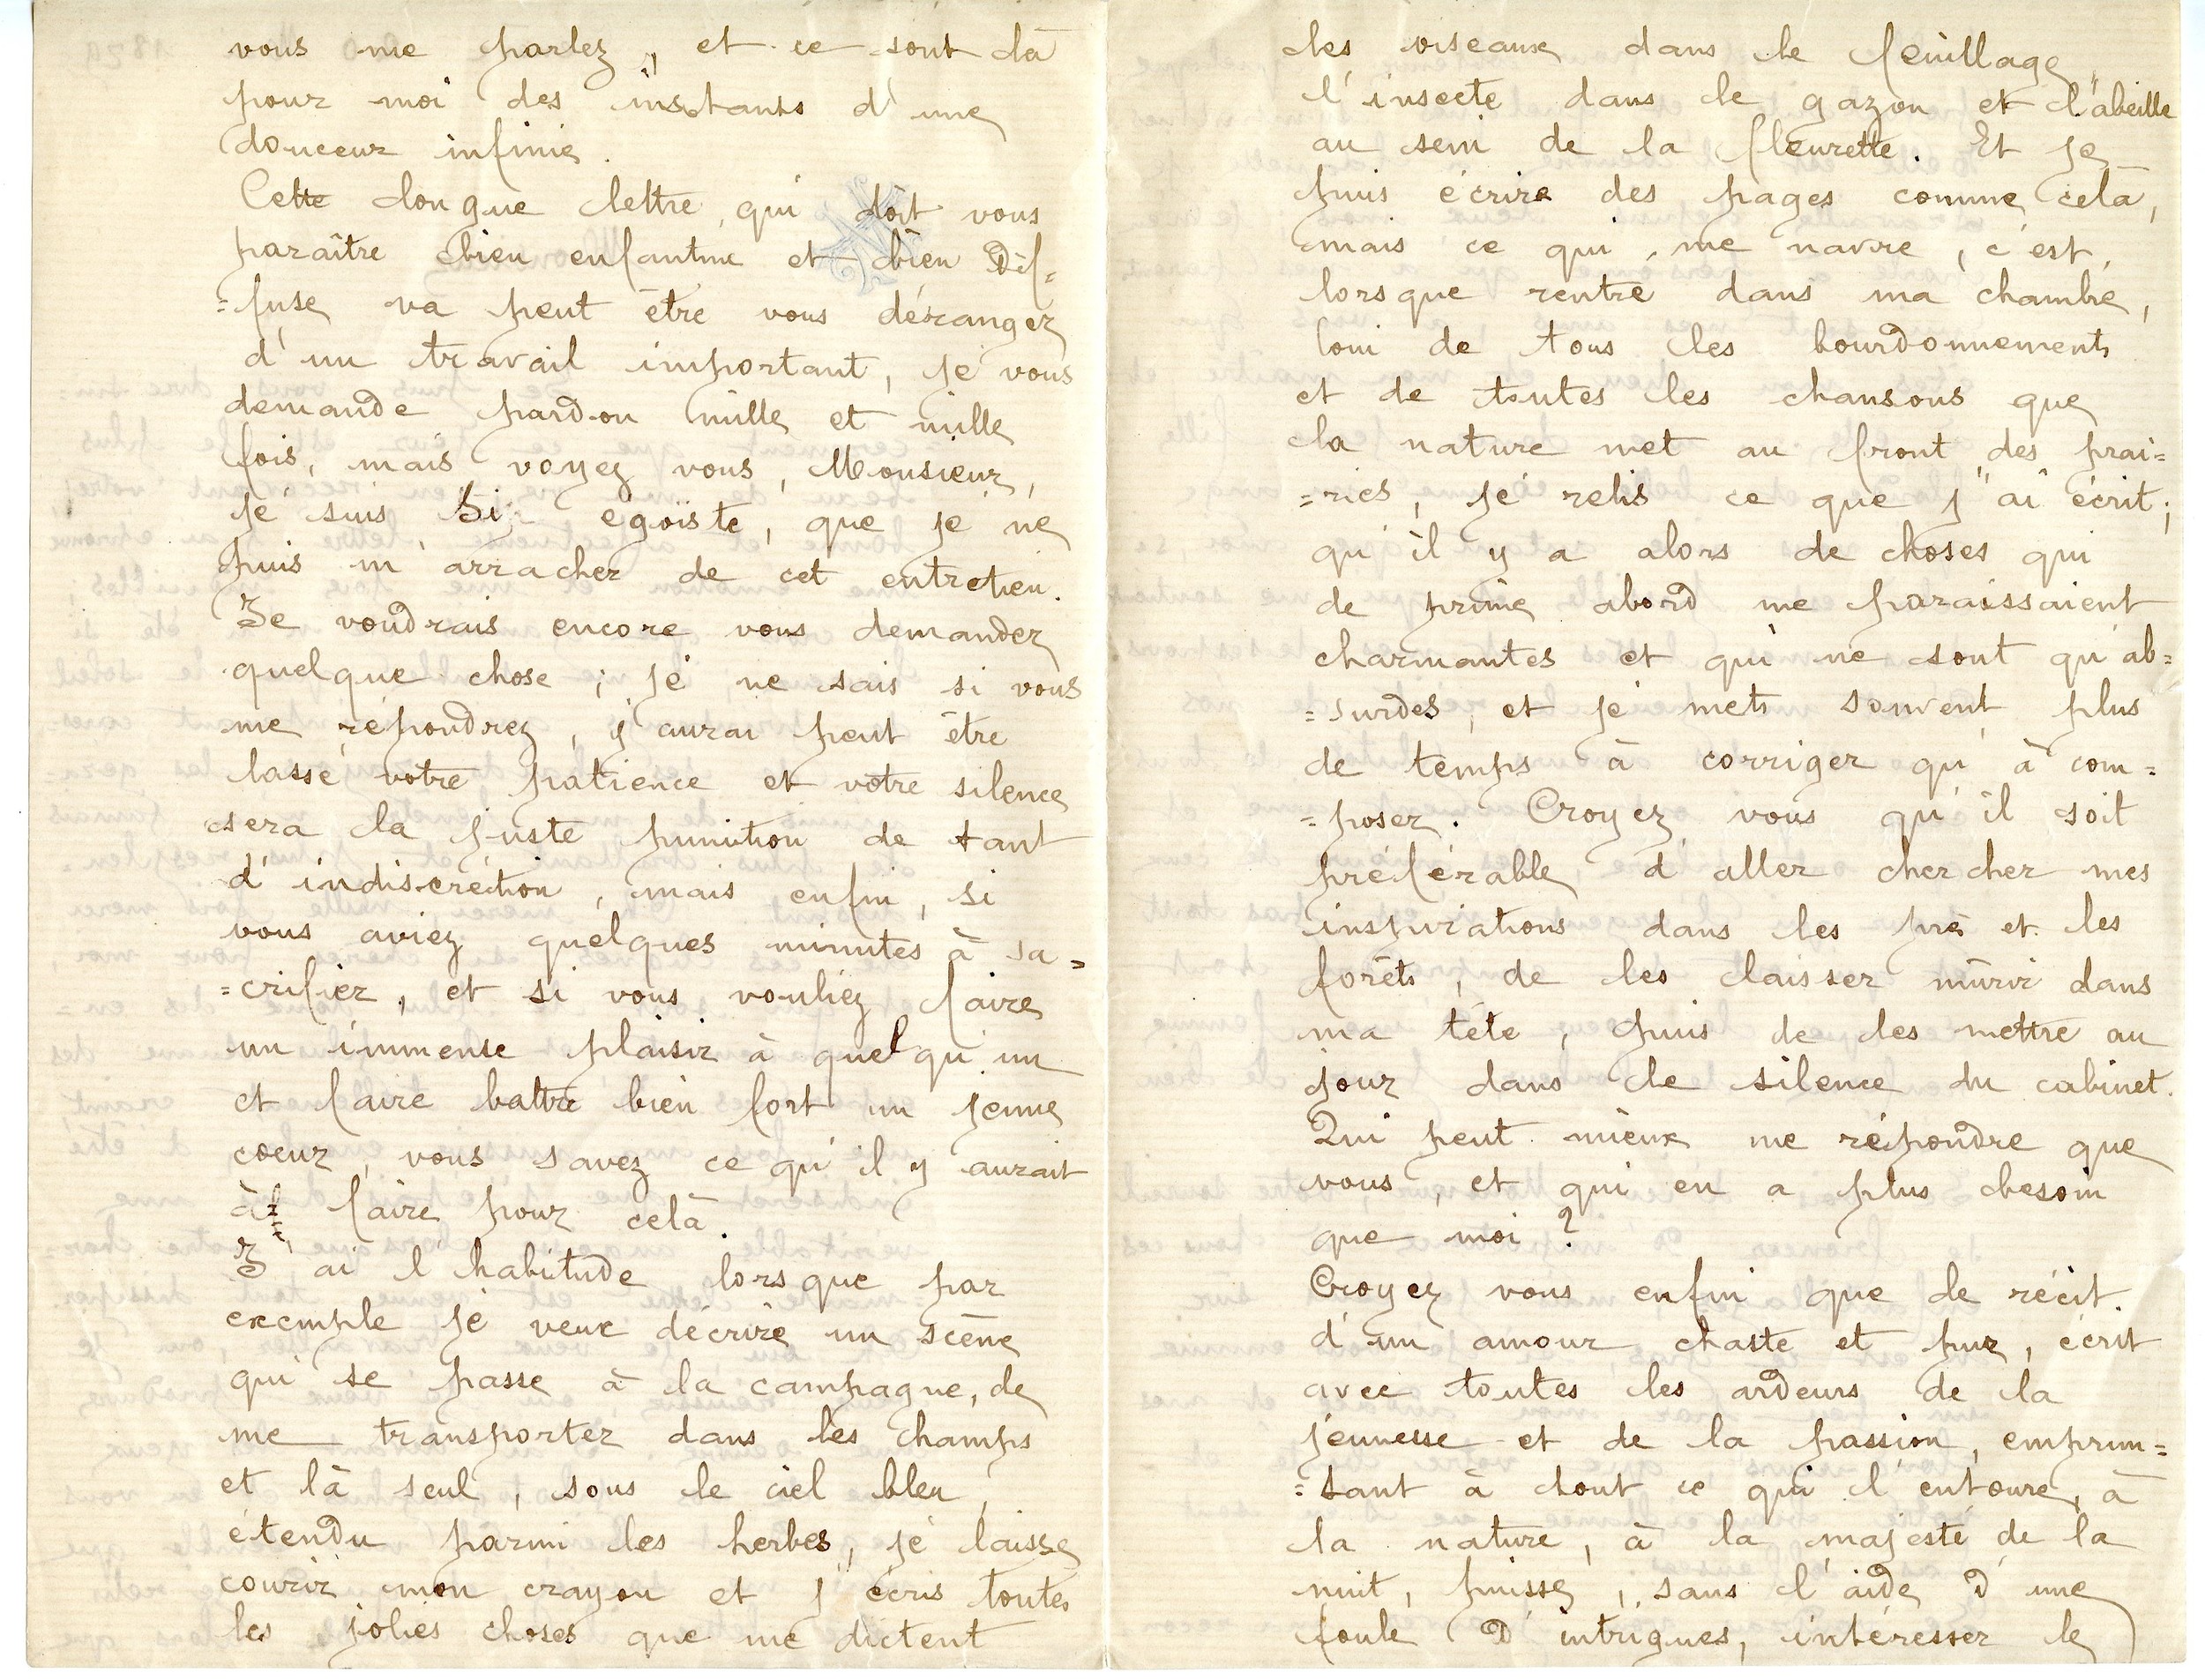 vous me parlez, et ce sont là
pour moi des instants d'une
douceur infinie.
Cette longue lettre, qui doit vous
paraître bien enfantine et bien dif=
=fuse va peut être vous déranger
d'un travail important, je vous
demande pardon mille et mille
fois, mais voyez vous, Monsieur,
je suis si egoïste, que je ne
puis m'arracher de cet entretien.
Je voudrais encore vous demander
quelque chose ; je ne sais si vous
me répondrez, j'aurai peut être
lassé votre patience et votre silence
sera la juste punition de tant
d'indiscrétion, mais enfin, si
vous aviez quelques minutes à sa=
=crifier, et si vous vouliez faire
un immense plaisir à quelqu'un
et faire battre bien fort un jeune
coeur, vous savez ce qu'il y aurait
à faire pour celà.
J'ai l'habitude lorsque par
exemple je veux décrire un scène
qui se passe à la campagne, de
me transporter dans les champs
et là seul, sous le ciel bleu,
étendu parmi les herbes, je laisse
courir mon crayon et j'écris toutes
les jolies choses que me dictent
les oiseaux dans le feuillage,
l'insecte dans le gazon et l'abeille
au sein de la fleurette. Et je
puis écrire des pages comme celà,
mais ce qui me navre, c'est,
lorsque rentré dans ma chambre,
loin de tous les bourdonnements
et de toutes les chansons que
la nature met au front des prai=
=ries, je relis ce que j'ai écrit ;
qu'il y a alors de choses qui
de prime abord me paraissaient
charmantes et qui ne sont qu'ab=
=surdes, et je mets souvent plus
de temps à corriger qu'à com=
=poser. Croyez vous qu'il soit
préférable d'aller chercher mes
inspirations dans les prés et les
forêts, de les laisser mûrir dans
ma tête, puis de les mettre au
jour dans le silence du cabinet.
Qui peut mieux me répondre que
vous, et qui en a plus besoin
que moi ?
Croyez vous enfin que le récit
d'un amour chaste et pur, écrit
avec toutes les ardeurs de la
jeunesse et de la passion, emprun=
=tant à tout ce qui l'entoure, à
la nature, à la majesté de la
nuit, puisse, sans l'aide d'une
foule d'intrigues, intéresser le